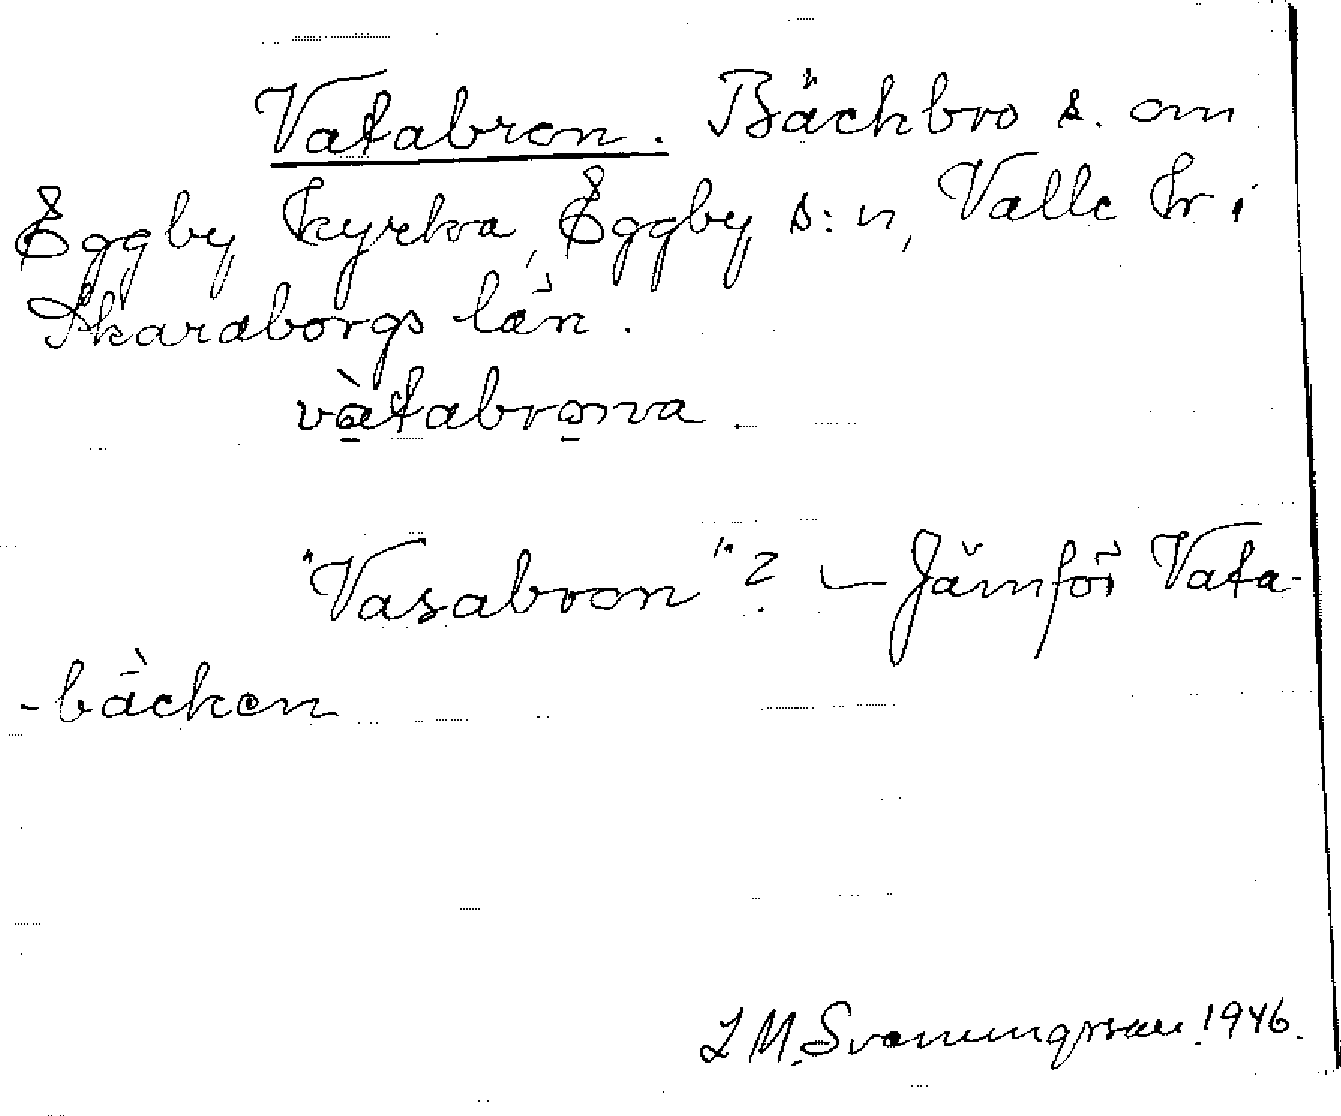 Vatabron. Bäckbro s. om
Eggby kyrka, Eggby s:n, Valle hr i
Skaraborgs län.
vàtabrona.
"Vasabron"? — Jämför Vata-
-bäcken
L M. Svenungsson 1946.